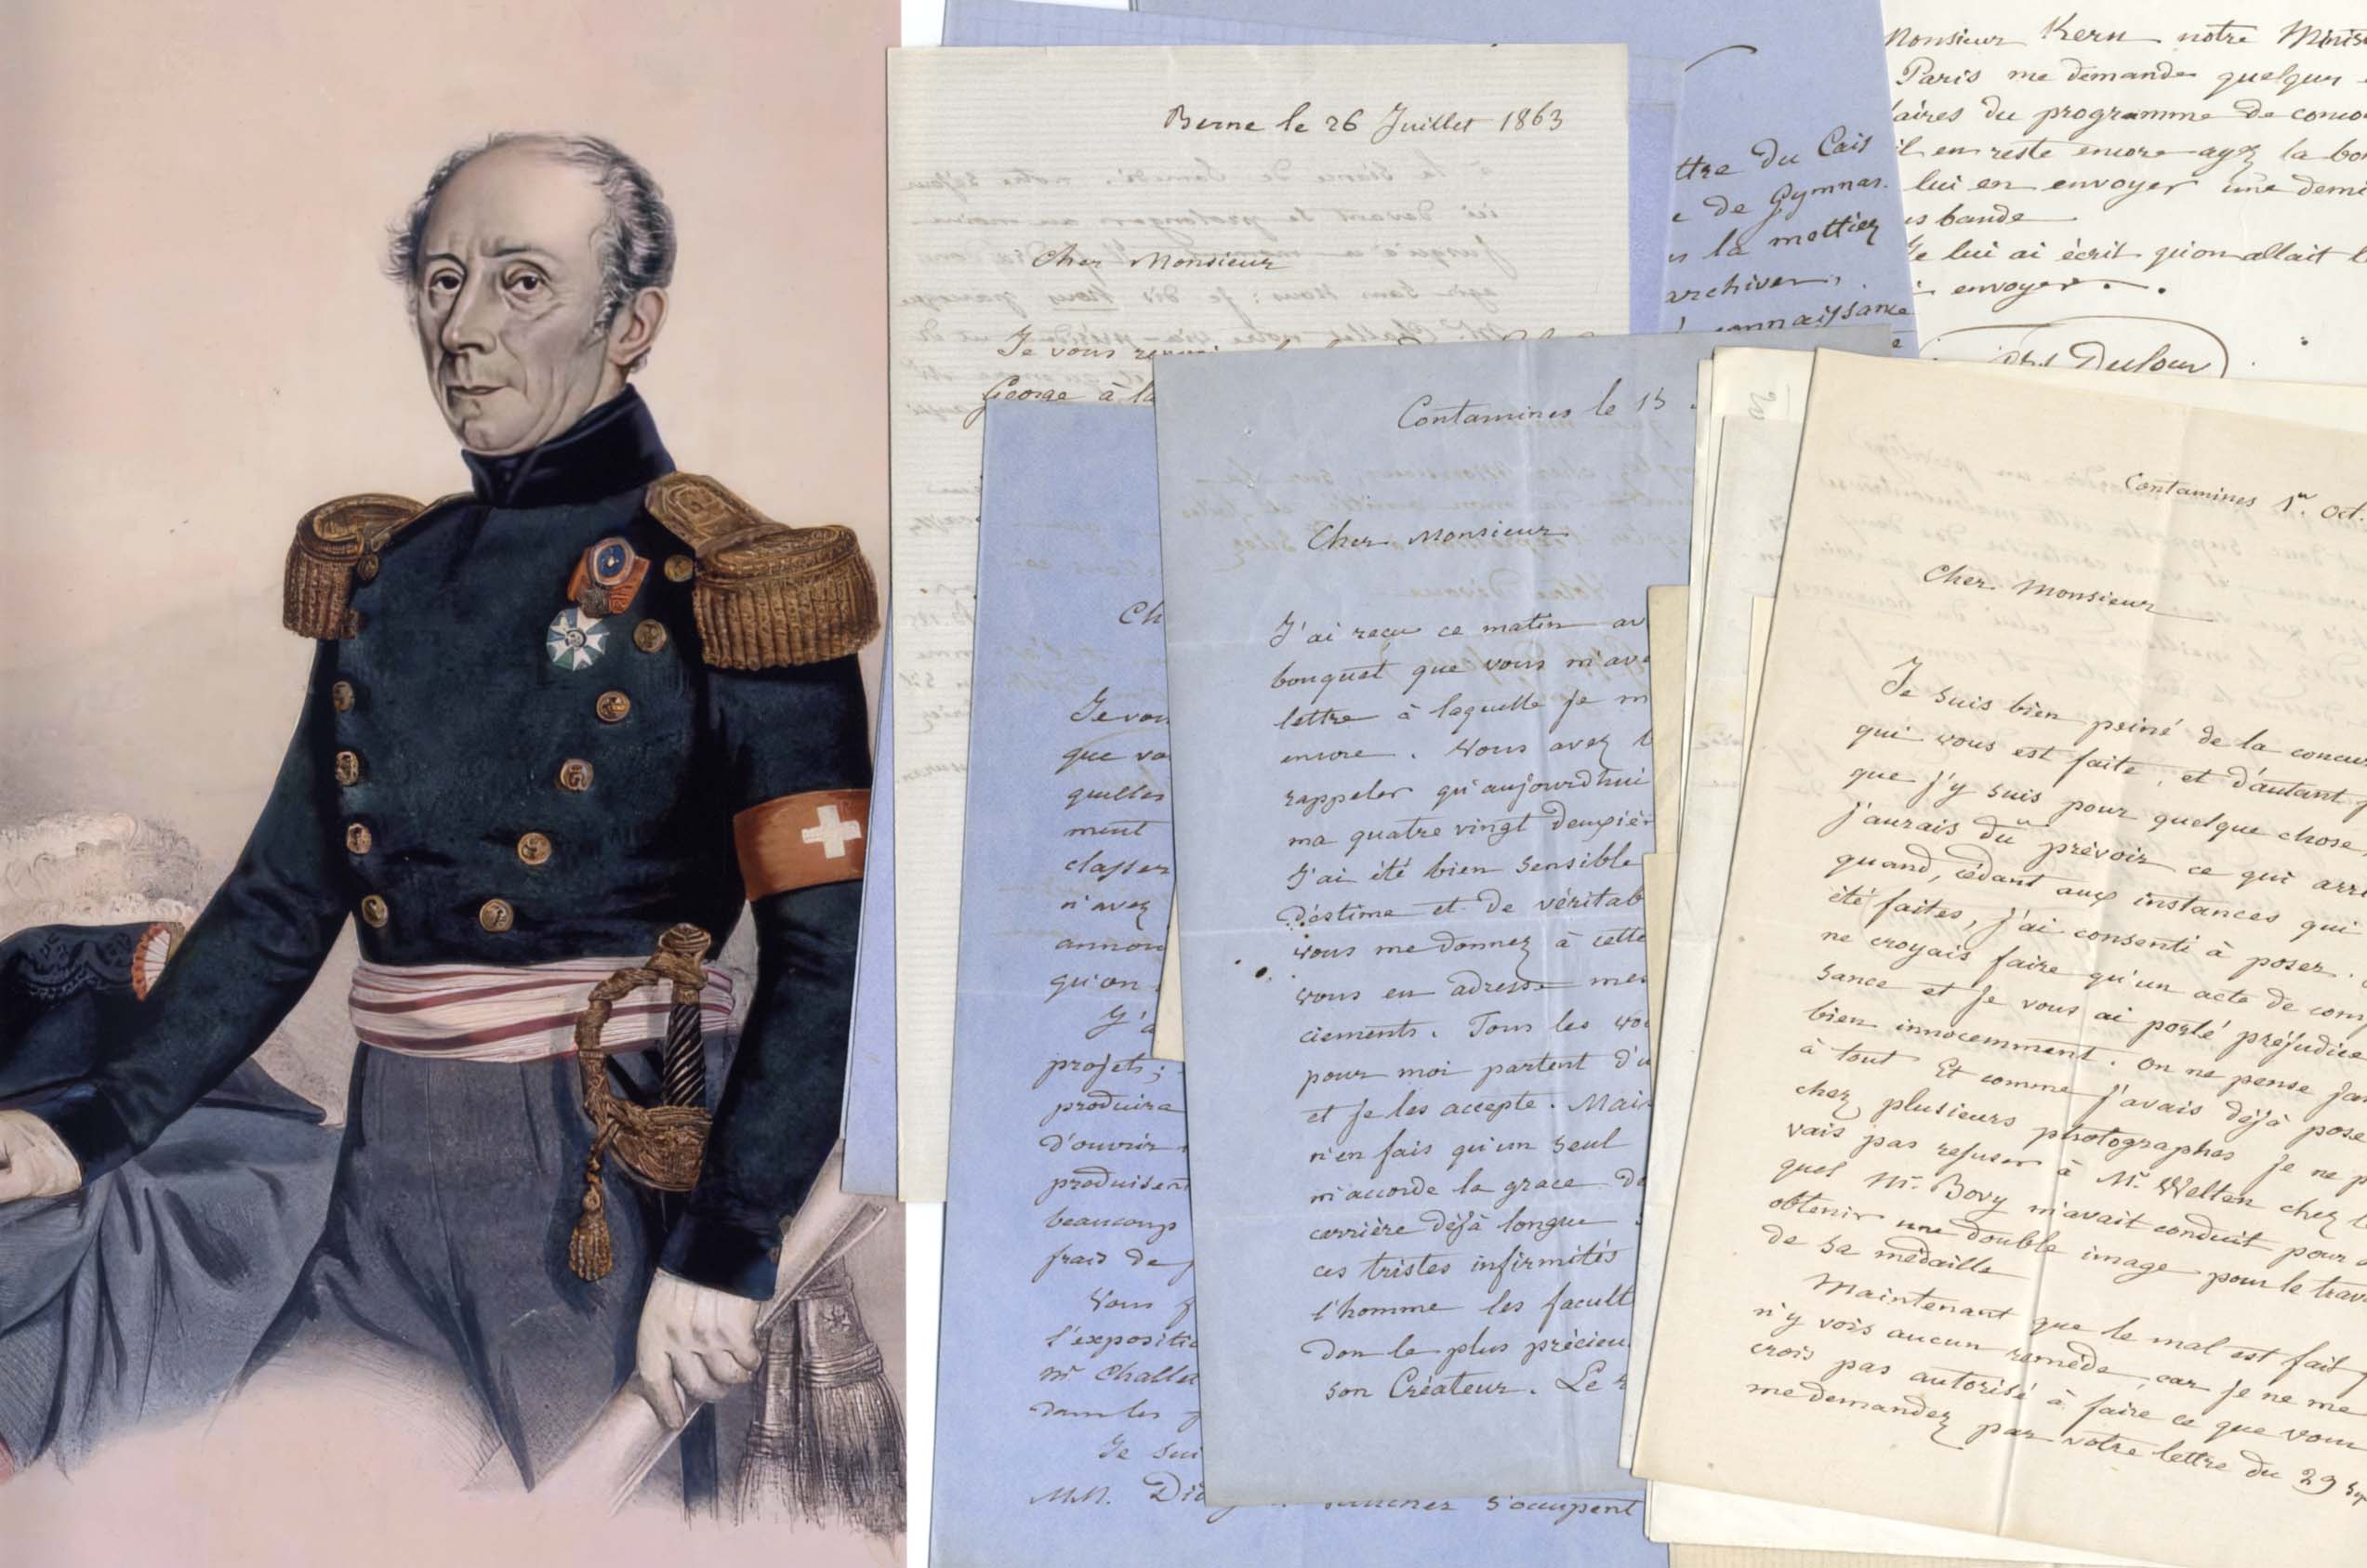 Berne le 26 Juillet 1863
Cher Monsieur
Je vous
George à la
Monsieur Kern notre Minis
Paris me demande quelques
aires du programme de conco
il en reste encore ayez la bo
lui en envoyer une demi
s bande
Je lui ai écrit qu'on allait l
envoyer.
Dufour
ttre du Cais
e de Gymnas.
la mettiez
archives,
connaissance
Ch
Je vou
que vo
quelles
ment
classer
n'avez
annon
qu'on
J'a
projets;
produire
d'ouvrir
produisent
beaucoup
frais de
Vous
l'expositi
Mr Challet
dans les
Je sui
MM. Did
s'occupent
Contamines le 15
Cher Monsieur
J'ai reçu ce matin av
bouquet que vous m'ave
lettre à laquelle je m
encore. Vous avez
rappeler qu'aujourd'hui
ma quatre vingt deuxièm
J'ai été bien sensible
d'estime et de véritab
vous me donnez à cette
vous en adresse mes
ciements. Tous les vo
pour moi partent d'u
et je les accepte. Mais
n'en fais qu'un seul
m'accorde la grace de
carrière déjà longue
ces tristes infirmités
l'homme les facult
don le plus précieu
son Créateur. Le
Contamines 1er. Oct.
Cher Monsieur
Je suis bien peiné de la concur
qui vous est faite, et d'autant p
que j'y suis pour quelque chose,
j'aurais dû prévoir ce qui arri
quand, cédant aux instances qui
été faites, j'ai consenti à poser.
ne croyais faire qu'un acte de com
sance et je vous ai porté préjudice
bien innocemment. On ne pense jam
à tout Et comme j'avais déjà posé
chez plusieurs photographes je ne p
vais pas refuser à Mr. Welten chez l
quel Mr. Bovy m'avait conduit pour
obtenir une double image pour le trav
de sa médaille
Maintenant que le mal est fait
n'y vois aucun remède, car je ne me
crois pas autorisé à faire ce que vous
me demandez par votre lettre du 29